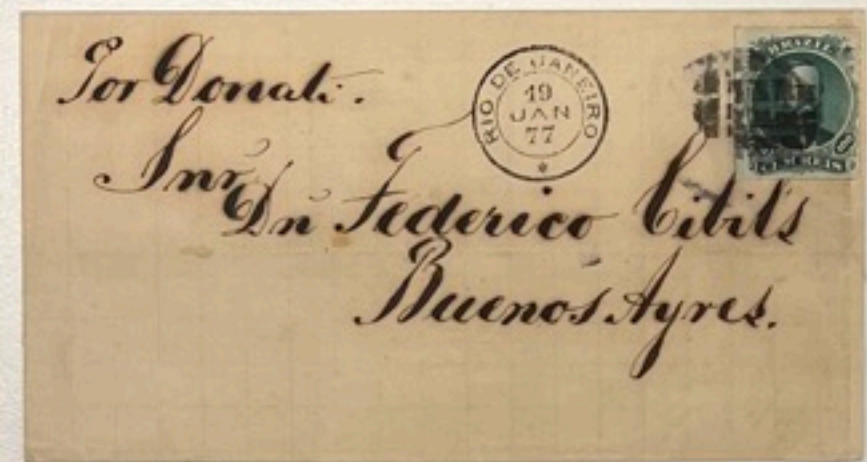 Por Donati.
RIO DE JANEIRO
19
JAN
77
BRAZIL
CEM REIS
Snr
Dn Federico Cibils
Buenos Ayres.